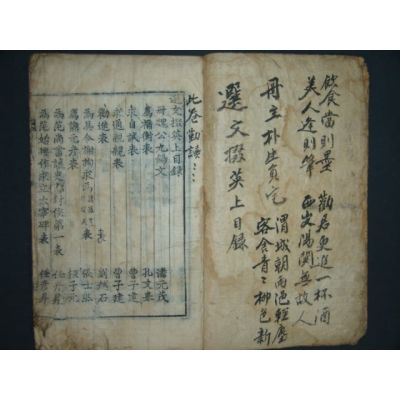 飲食當則墨 勸君更進一杯酒
美人逢則筆 西出陽關無故人
冊主朴生員宅 渭城朝雨浥輕塵
客舍青〻柳色新
選文掇英上目錄
此卷勤讀〻〻
選文掇英上目錄
冊魏公九錫文 潘元茂
薦禰衡表 孔文擧
求自試表 曹子建
求通親親表 曹子建
勸進表 劉越石
爲吳令謝詢求爲 表 張士然
薦譙元彦表 桓元子
爲范尚書讓吏部封侯第一表 任彦昇
爲范始興作求立太宰碑表 任彦昇